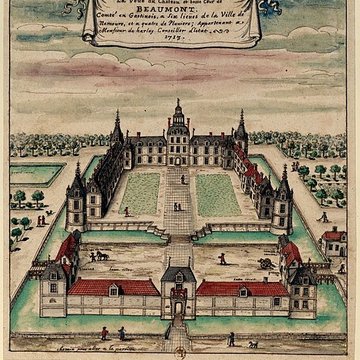 La Veue du Chasteau et basse Cour de
BEAUMONT.
Comté en Gastinois, a six lieues de la Ville de
Nemours, et a quatre de Pluviers; Appartenant a
Monsieur de harlay Conseiller d'état.
1713.